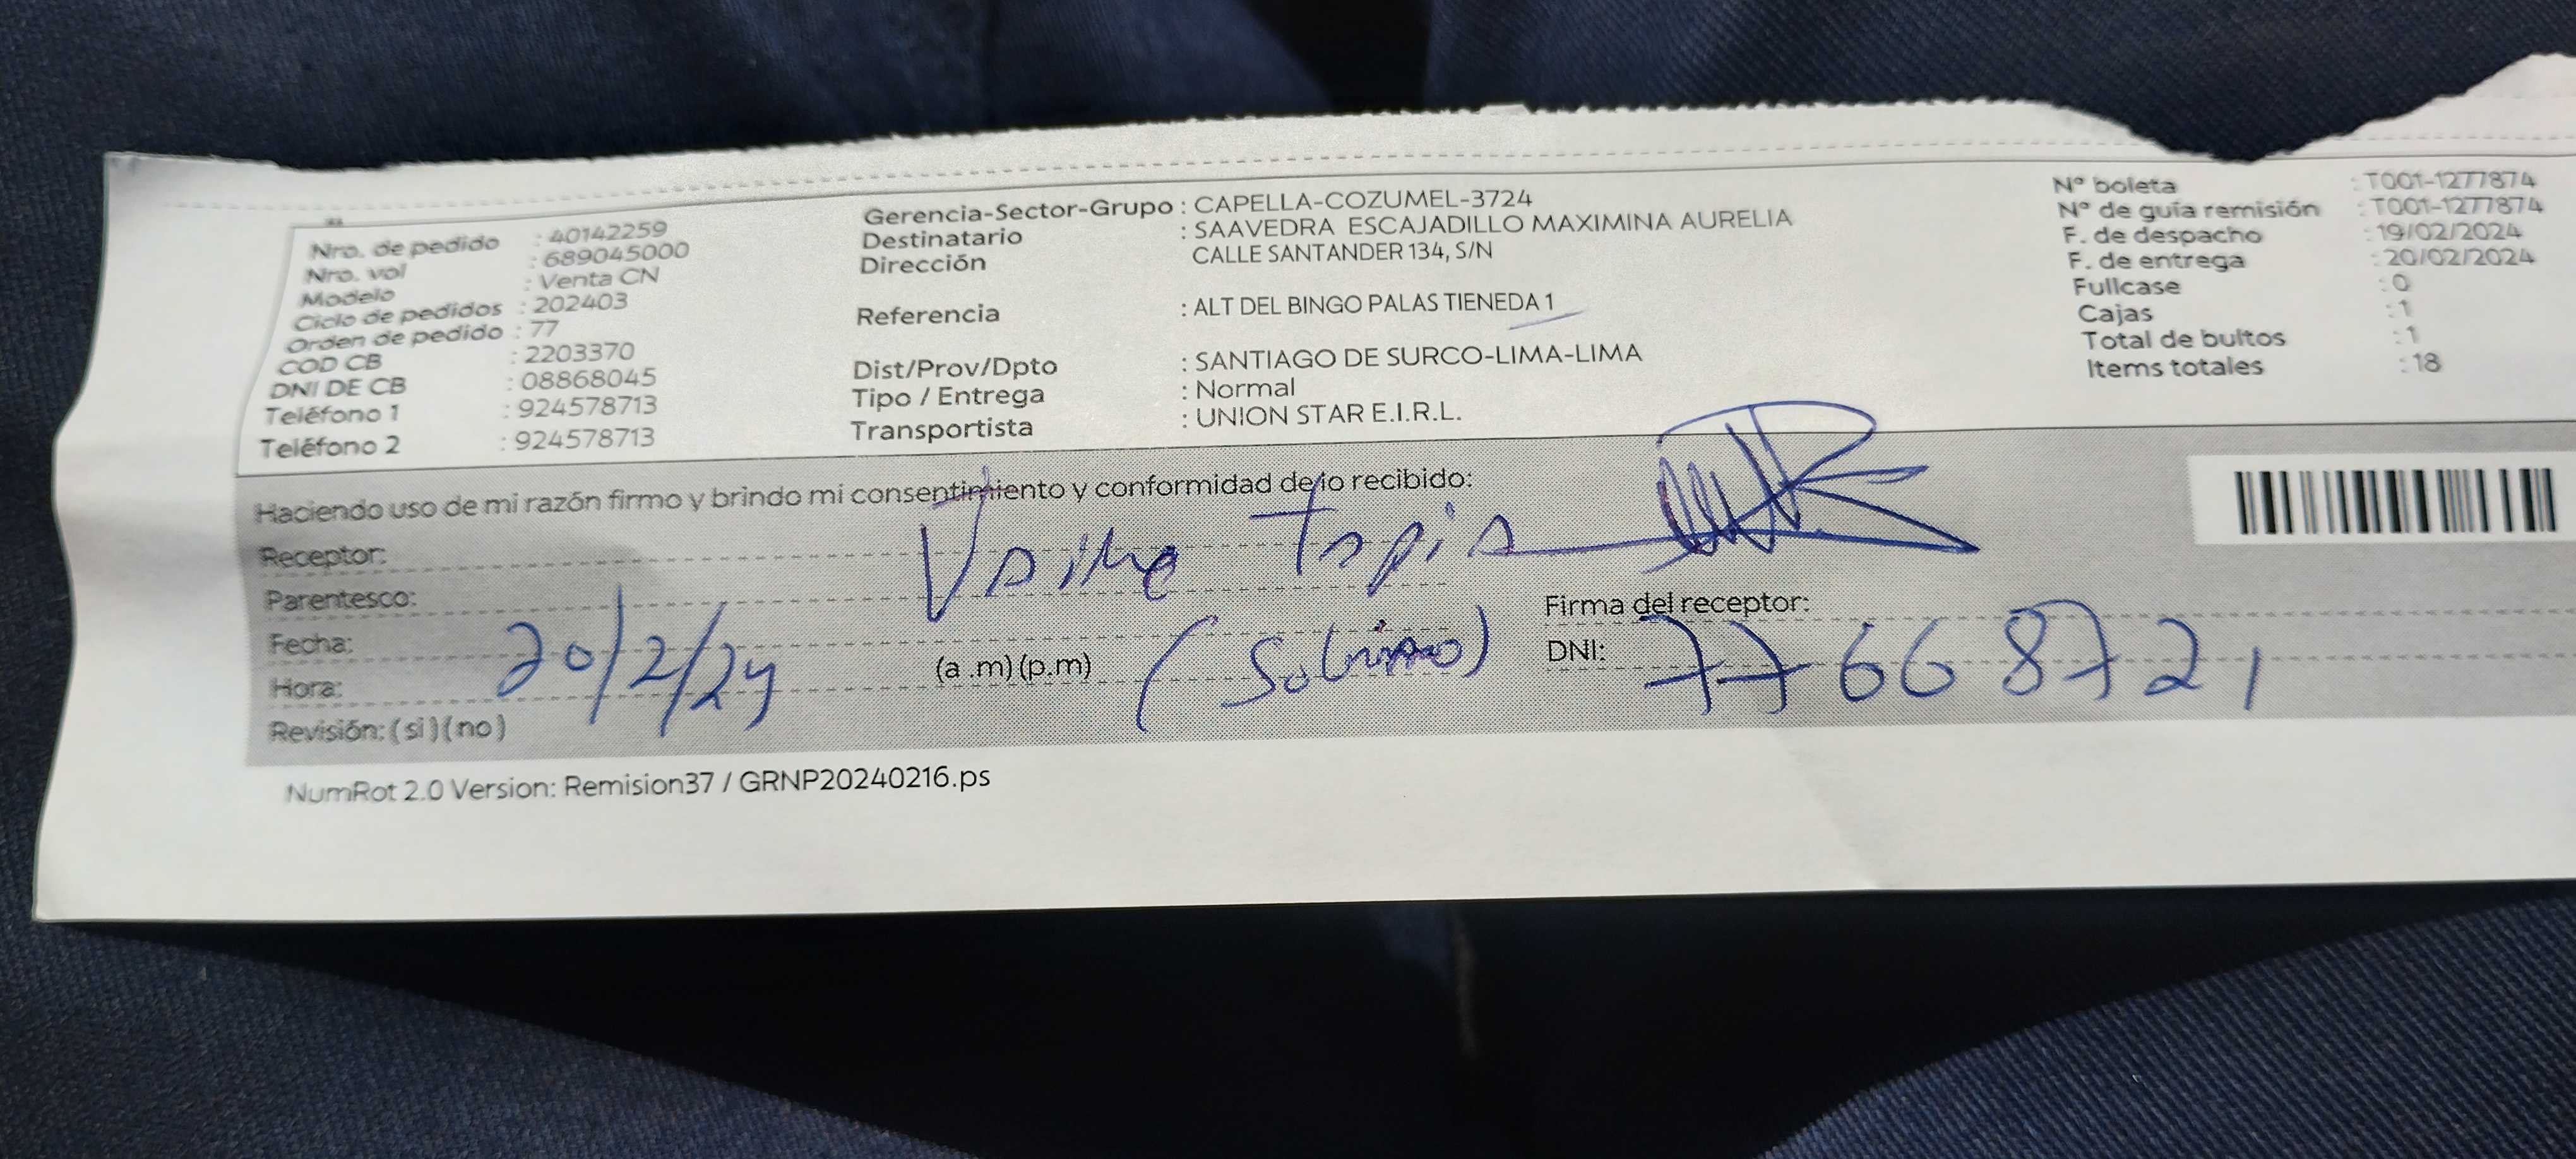 Nro. de pedido : 40142259
Nro. vol : 689045000
Modelo : Venta CN
Ciclo de pedidos : 202403
Orden de pedido : 77
COD CB : 2203370
DNI DE CB : 08868045
Teléfono 1 : 924578713
Teléfono 2 : 924578713
Gerencia-Sector-Grupo : CAPELLA-COZUMEL-3724
Destinatario : SAAVEDRA ESCAJADILLO MAXIMINA AURELIA
Dirección CALLE SANTANDER 134, S/N
Referencia : ALT DEL BINGO PALAS TIENEDA 1
Dist/Prov/Dpto : SANTIAGO DE SURCO-LIMA-LIMA
Tipo / Entrega : Normal
Transportista : UNION STAR E.I.R.L.
Nº boleta : T001-1277874
Nº de guía remisión : T001-1277874
F. de despacho : 19/02/2024
F. de entrega : 20/02/2024
Fullcase : 0
Cajas : 1
Total de bultos : 1
Items totales : 18
Haciendo uso de mi razón firmo y brindo mi consentimiento y conformidad de lo recibido:
Receptor: Jaime Tapia
Parentesco: (Sobrino)
Firma del receptor:
Fecha: 20/2/24
DNI: 77668721
Hora: (a .m) (p.m)
Revisión: ( si ) ( no )
NumRot 2.0 Version: Remision37 / GRNP20240216.ps